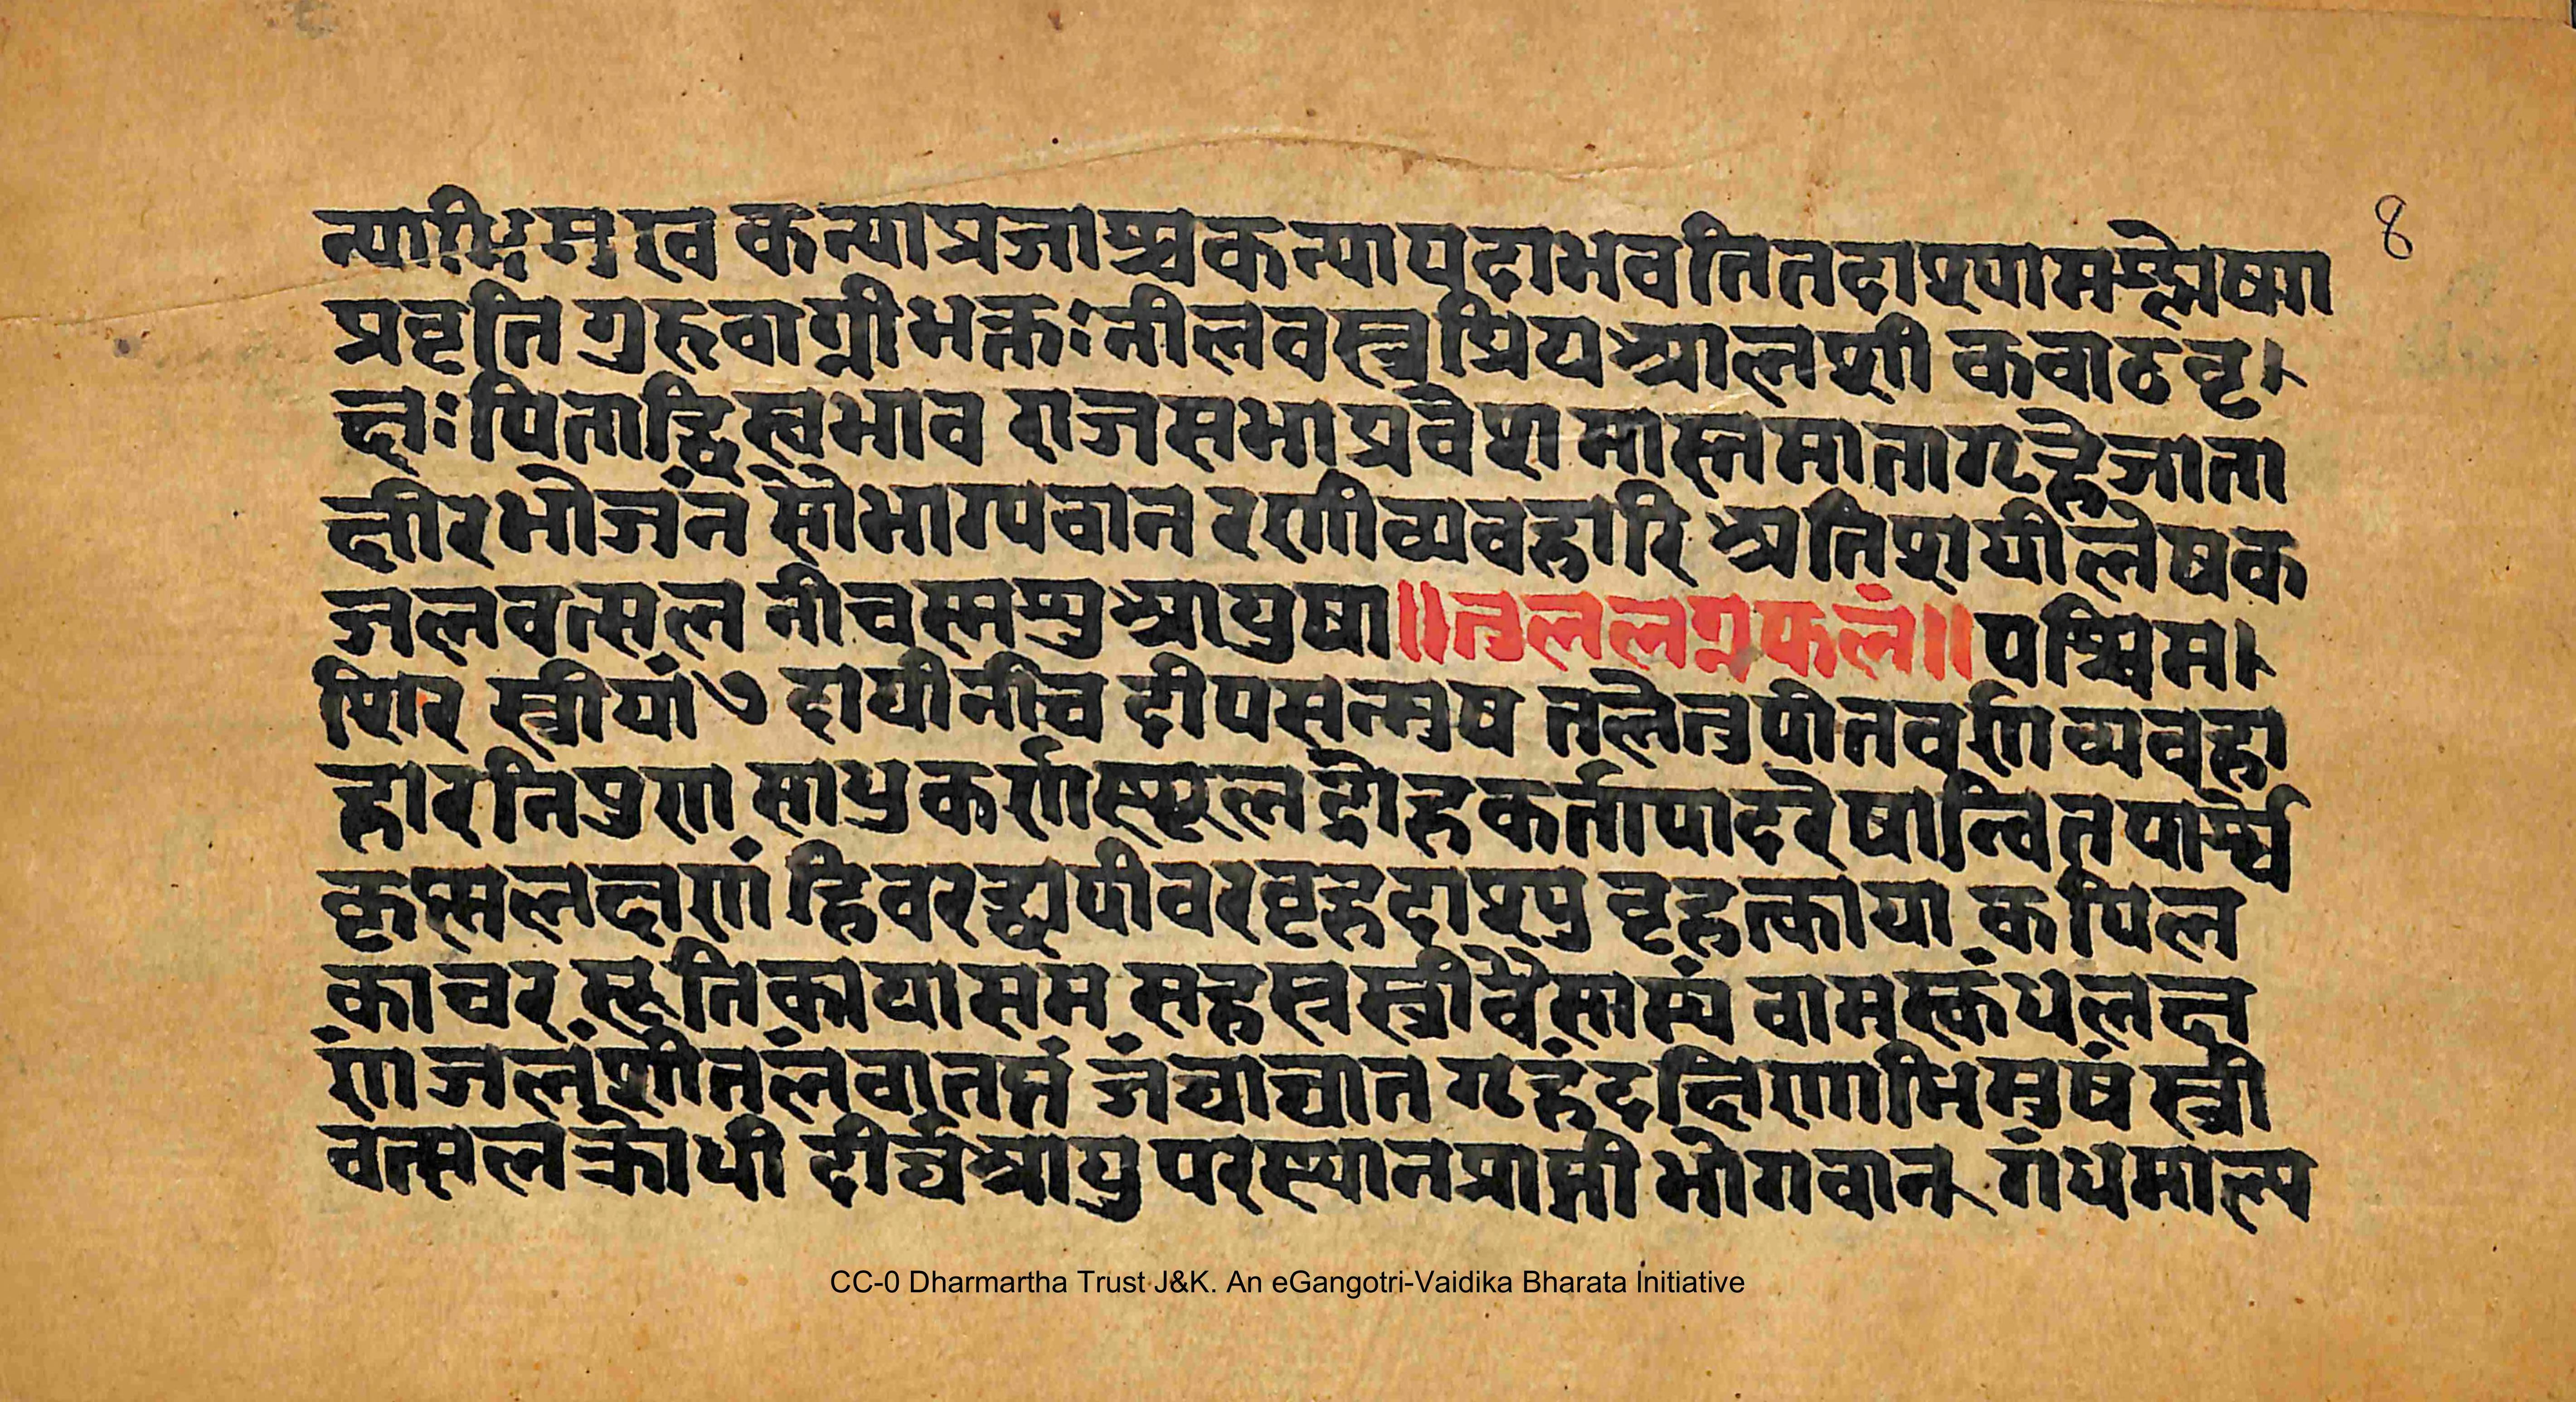 न्याग्निमुखे कन्याप्रजाश्चकन्यापदाभवतितदाश्यामश्लेष्मा
8
प्रवृति गुरुवाग्नीभक्तः नीलवस्त्रप्रिय आलशी कवाठवृ
क्षः पिताद्विस्वभाव राजसभाप्रवेश मास्नमातागृहेजाता
क्षीरभोजनं सौभाग्यवान रणीव्यवहारि अतिशयीलेषक
जलवत्सल नीचस्मश्रु आयुषा॥तुललग्नफलं॥पश्चिम
शिर स्त्रीयां७ दायीनीच दीपसन्मुष तलेतुपीतवर्णव्यवहा
हारनिपुण साधुकर्णस्थूलद्रोहकर्तापादरेषान्वित पार्श्वे
कृष्मलक्षणं हिवरड्वापीवरवृहदाश्पु वृहत्काया कपिल
काचर स्फूतिकायासम सहस्त्रस्त्रीवैसाम्यं वामस्कंधलक्ष
णं जलंशीतलंवातप्तं जंघाघात गृहंदक्षिणाभिमुषं स्त्री
वत्सलक्रोधी दीर्घआयु परस्थानप्राप्ती भोगवान् गंधमाल्य
CC-0 Dharmartha Trust J&K. An eGangotri-Vaidika Bharata Initiative